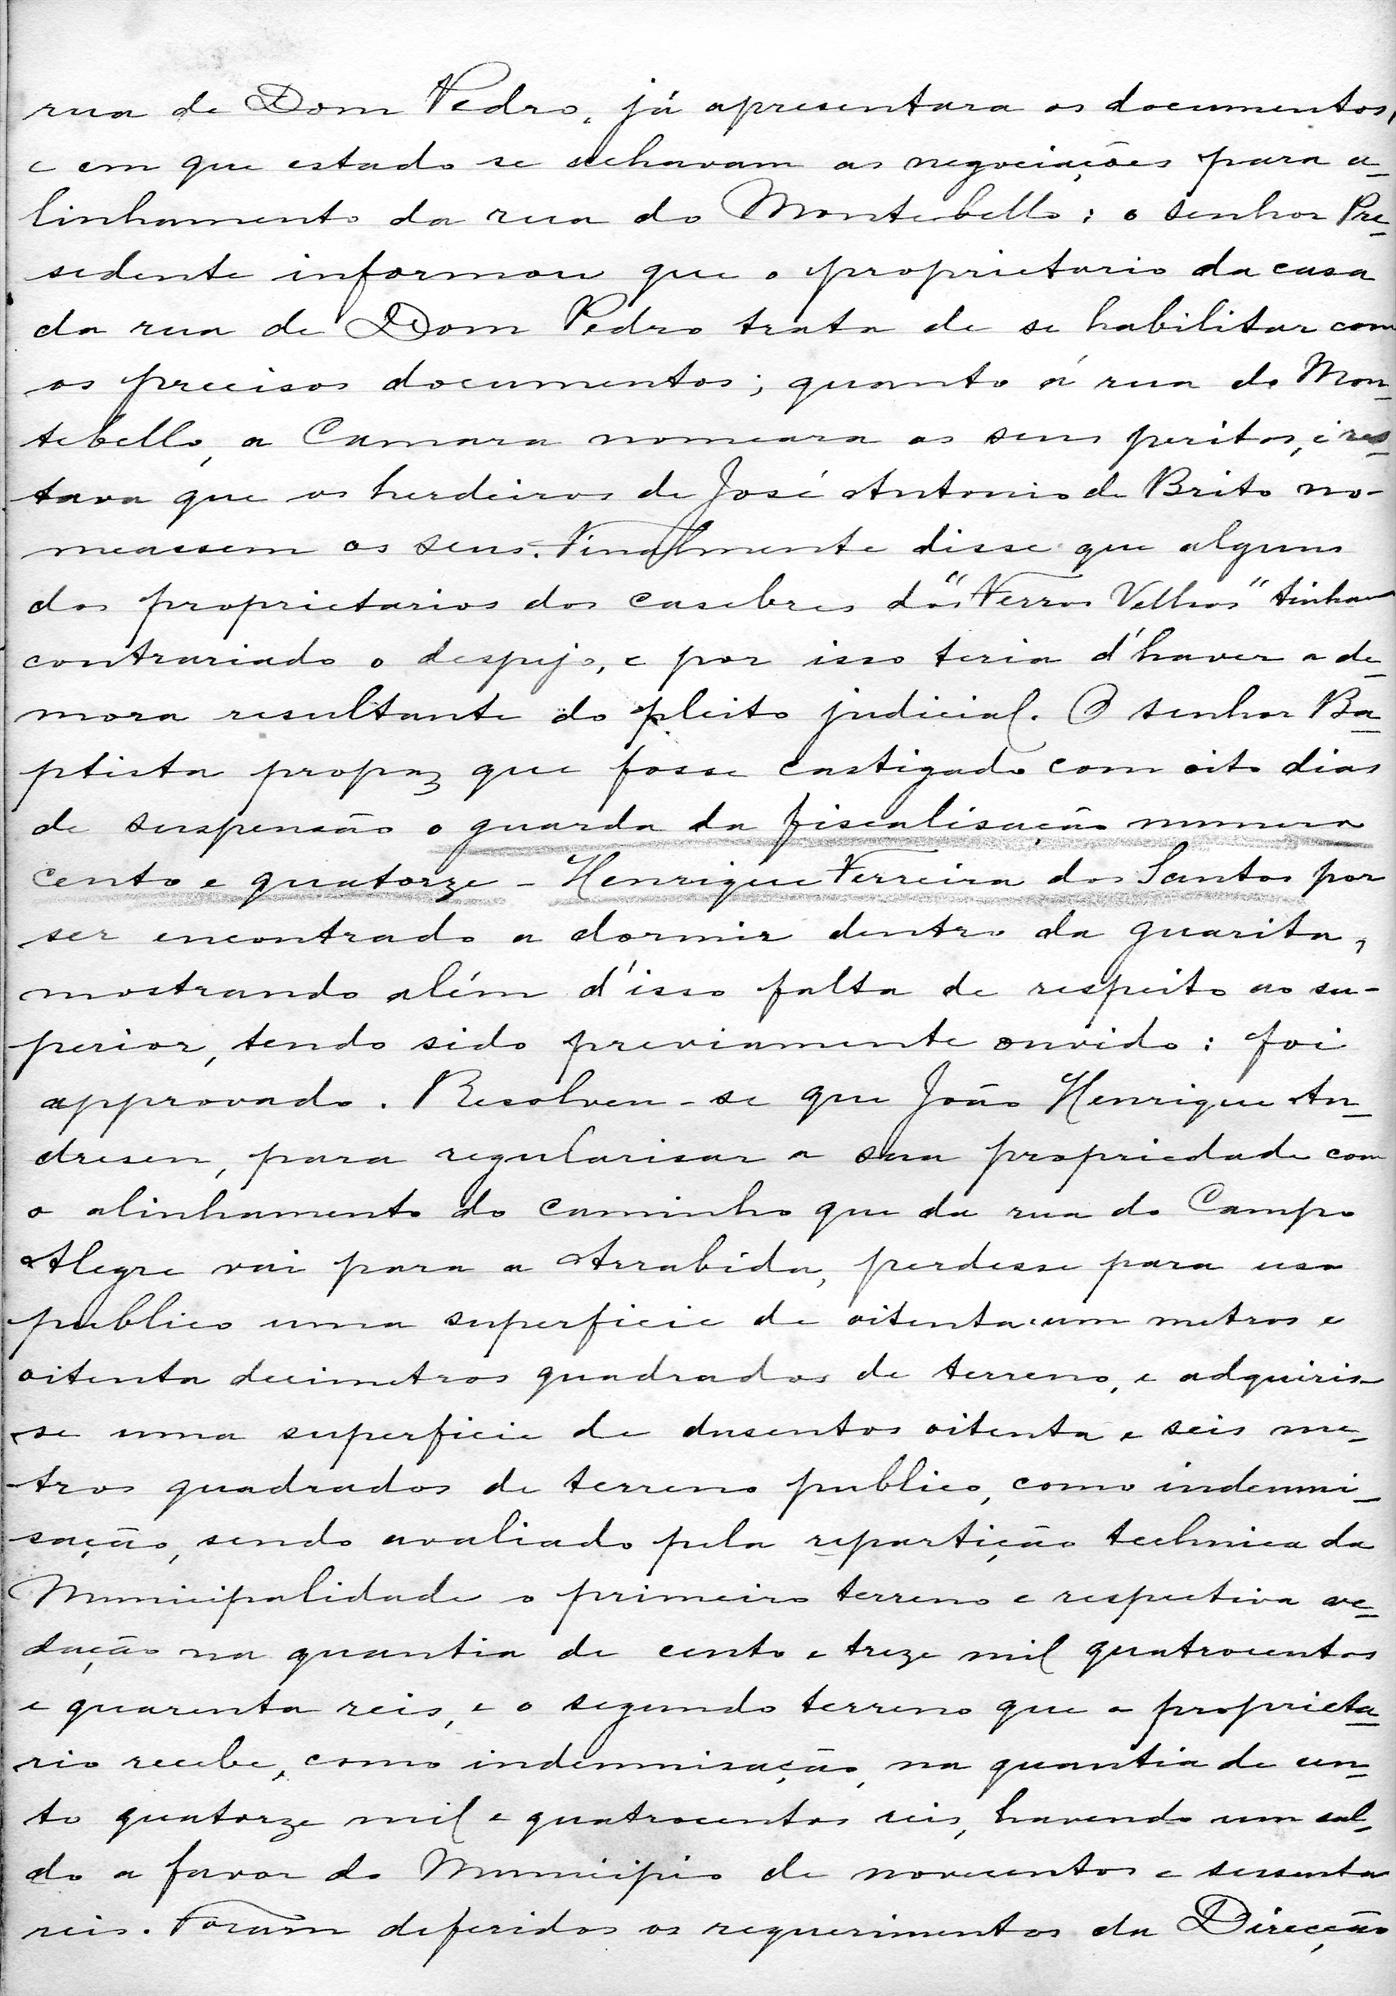 rua de Dom Pedro, já apresentara os documentos,
e em que estado se achavam as negociações para a-
linhamento da rua do Montebello: o senhor Pre-
sidente informou que o proprietario da casa
da rua de Dom Pedro trata de se habilitar com
os precisos documentos; quanto á rua do Mon-
tebello, a Camara nomeara os seus peritos, e res-
tava que os herdeiros de José Antonio de Brito no-
meassem os seus. Finalmente disse que alguns
dos proprietarios dos casebres dos "Ferros Velhos" tinham
contrariado o despejo, e por isso teria d'haver a de-
mora resultante do pleito judicial. O senhor Ba-
ptista propoz que fosse castigado com oito dias
de suspensão o guarda da fiscalisação numero
cento e quatorze - Henrique Ferreira dos Santos por
ser encontrado a dormir dentro da guarita,
mostrando além d'isso falta de respeito ao su-
perior, tendo sido previamente ouvido: foi
approvado. Resolveu-se que João Henrique An-
dresen, para regularisar a sua propriedade com
o alinhamento do caminho que da rua do Campo
Alegre vai para a Arrabida, perdesse para uso
publico uma superficie de oitenta e um metros e
oitenta decimetros quadrados de terreno, e adquiris-
se uma superficie de dusentos oitenta e seis me-
tros quadrados de terreno publico, como indemni-
sação, sendo avaliado pela repartição technica da
Municipalidade o primeiro terreno e respectiva ve-
dação na quantia de cento e treze mil quatrocentos
e quarenta reis, e o segundo terreno que o proprieta-
rio recebe, como indemnisação, na quantia de cen-
to quatorze mil e quatrocentos reis, havendo um sal-
do a favor do Municipio de novecentos e sessenta
reis. Foram deferidos os requerimentos da Direcção